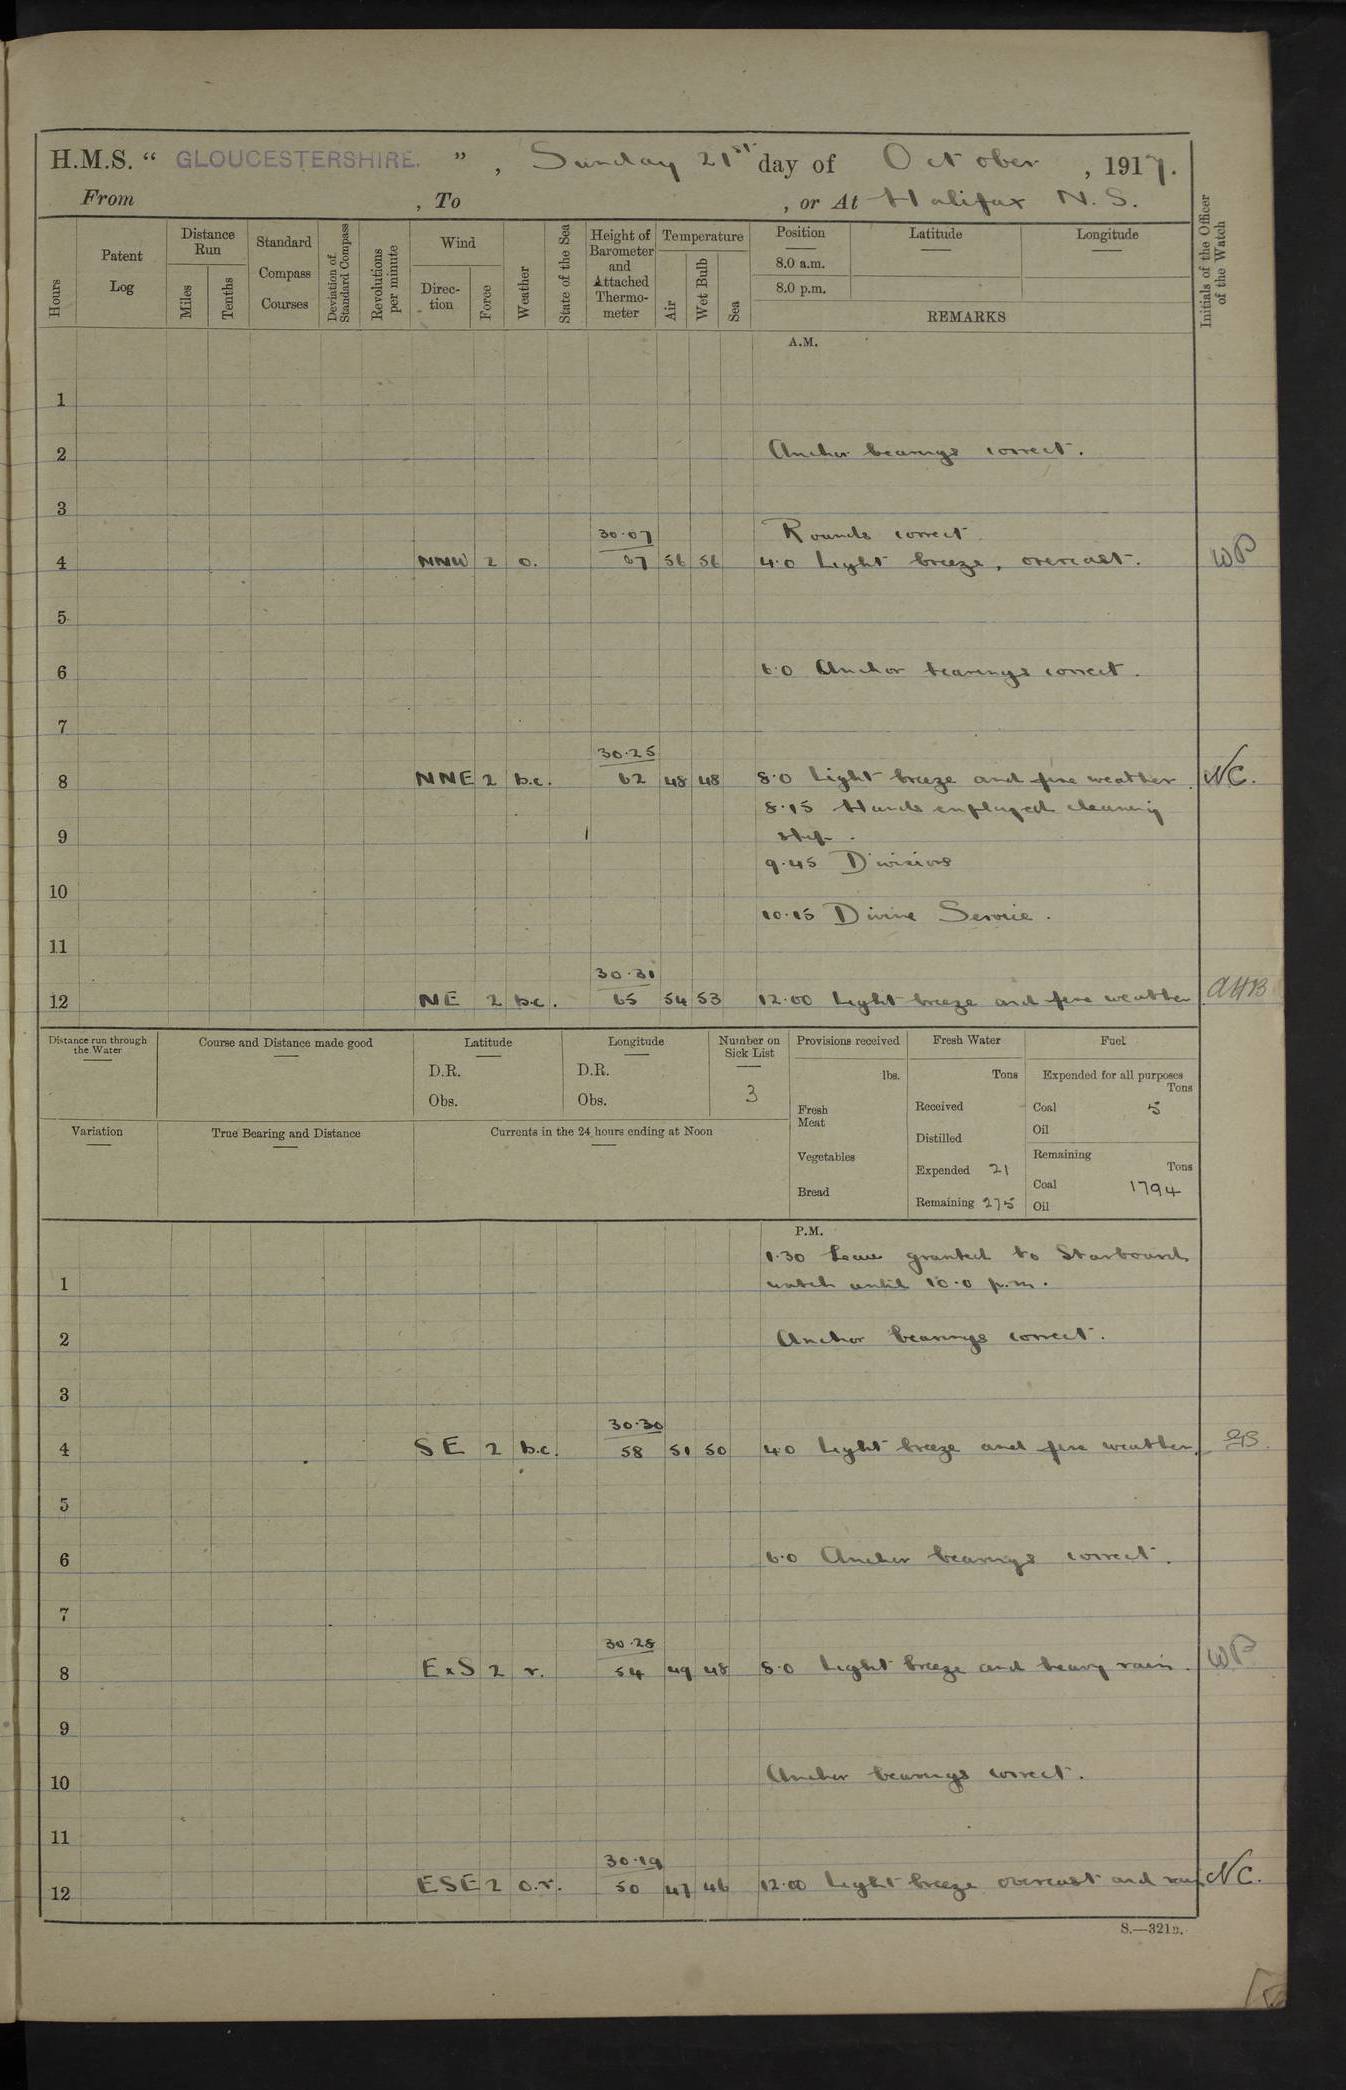 H.M.S. “ GLOUCESTERSHIRE. ” , Sunday 21st day of October , 1917.
From , To , or At Halifax N.S.
Hours
Patent Log
Distance Run
Miles
Tenths
Standard Compass Courses
Deviation of Standard Compass
Revolutions per minute
Wind
Direction
Force
Weather
State of the Sea
Height of Barometer and Attached Thermometer
Temperature
Air
Wet Bulb
Sea
Position
8.0 a.m.
8.0 p.m.
Latitude
Longitude
REMARKS
Initials of the Officer of the Watch
A.M.
1
2 Anchor bearings correct.
3
30.07 Rounds correct
4 NNW 2 o. 67 56 56 4.0 Light breeze, overcast. WP
5
6 6.0 Anchor bearings correct.
7
30.25
8 NNE 2 b.c. 62 48 48 8.0 Light breeze and fine weather. NC.
8.15 Hands employed cleaning
9 ship.
9.45 Divisions
10
10.15 Divine Service.
11
30.31
12 NE 2 b.c. 65 54 53 12.00 Light breeze and fine weather AHB
Distance run through the Water
Course and Distance made good
Latitude
D.R.
Obs.
Longitude
D.R.
Obs.
Number on Sick List
3
Provisions received
lbs.
Fresh Meat
Vegetables
Bread
Fresh Water
Tons
Received
Distilled
Expended 21
Remaining 275
Fuel
Expended for all purposes
Tons
Coal 5
Oil
Remaining
Tons
Coal 1794
Oil
Variation
True Bearing and Distance
Currents in the 24 hours ending at Noon
P.M.
1.30 Leave granted to Starboard
1 watch until 10.0 p.m.
2 Anchor bearings correct.
3
30.30
4 SE 2 b.c. 58 51 50 4.0 Light breeze and fine weather.
5
6 6.0 Anchor bearings correct.
7
30.28
8 ExS 2 r. 54 49 48 8.0 Light breeze and heavy rain. WP
9
10 Anchor bearings correct.
11
30.19
12 ESE 2 o.r. 50 47 46 12.00 Light breeze overcast and rain NC.
S.—321B.